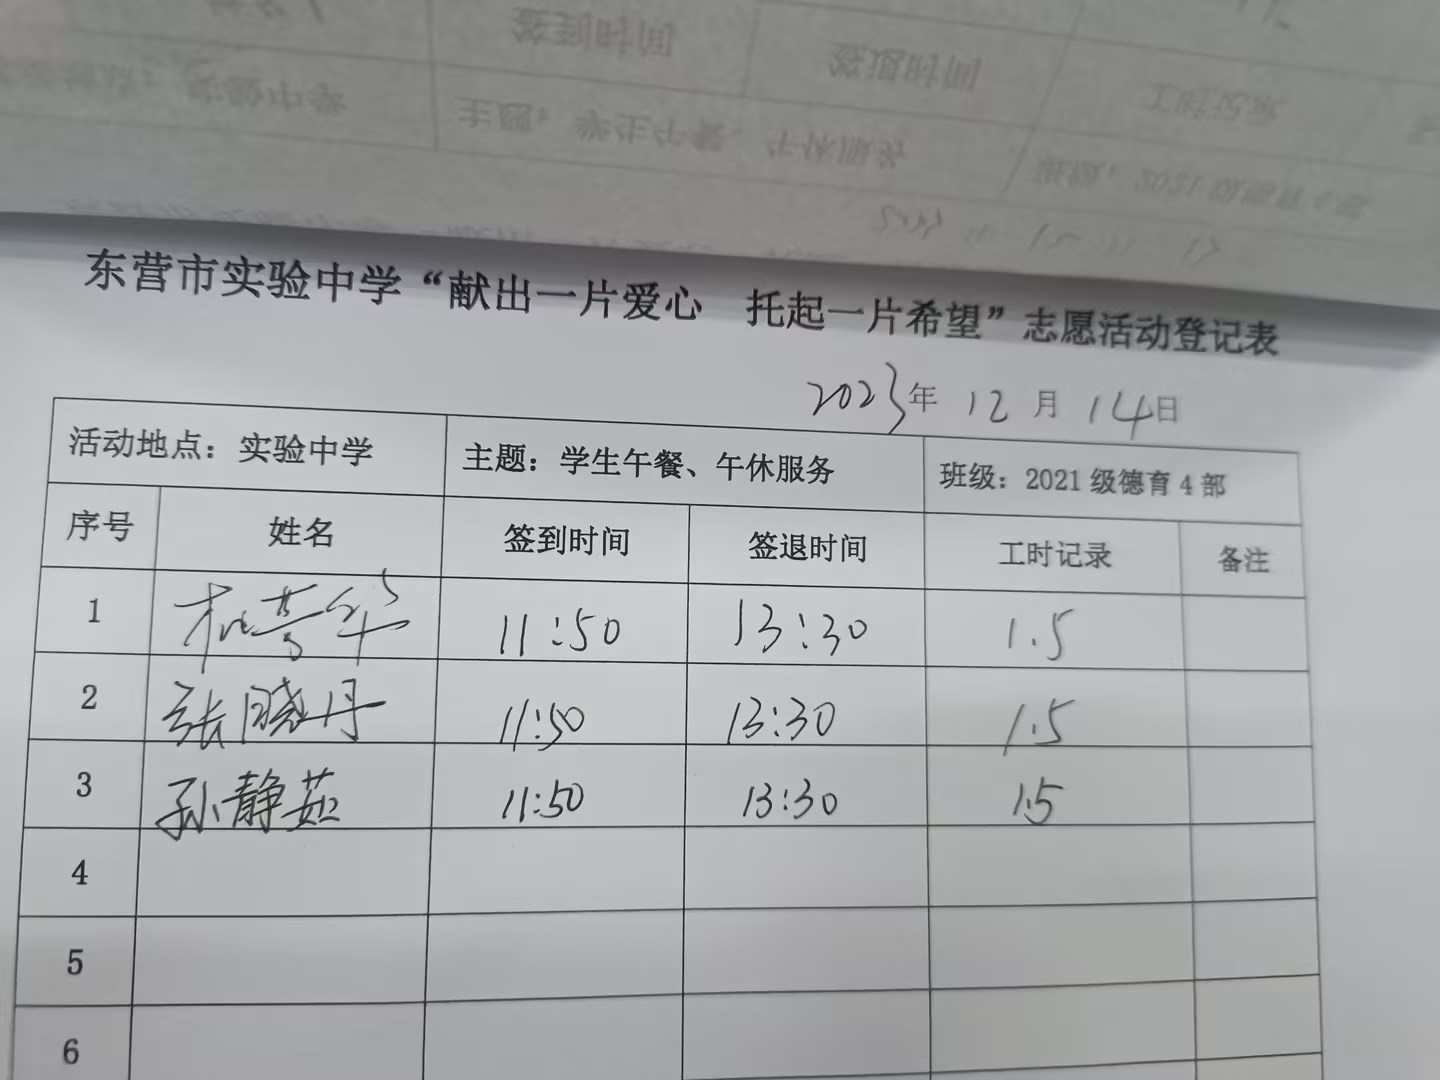 东营市实验中学“献出一片爱心 托起一片希望”志愿活动登记表
2023年 12月 14日
活动地点：实验中学 主题：学生午餐、午休服务 班级：2021级德育4部
序号 姓名 签到时间 签退时间 工时记录 备注
1 11:50 13:30 1.5
2 张晓丹 11:50 13:30 1.5
3 孙静茹 11:50 13:30 1.5
4
5
6